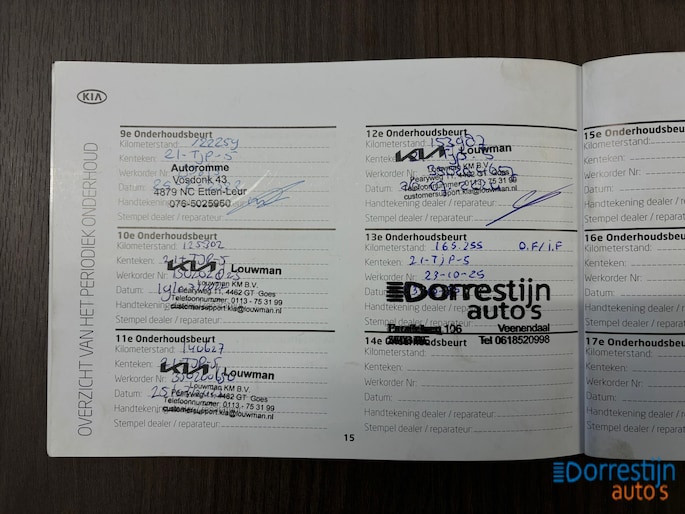 KIA
OVERZICHT VAN HET PERIODIEK ONDERHOUD
9e Onderhoudsbeurt
Kilometerstand:
Kenteken: 21-TJP-5
Werkorder Nr.:
Autoromme
Vosdonk 43
Datum:
4879 NC Etten-Leur
076-5025960
Handtekening dealer / reparateur:
Stempel dealer / reparateur:
10e Onderhoudsbeurt
Kilometerstand: 125902
Kenteken: 21-TJP-5
KIA Louwman
Werkorder Nr.:
Louwman KM B.V.
Datum:
Pearyweg 11, 4462 GT Goes
Telefoonnummer: 0113 - 75 31 99
Handtekening
customersupport.kia@louwman.nl
Stempel dealer / reparateur:
11e Onderhoudsbeurt
Kilometerstand: 140627
Kenteken: 21-TJP-5
KIA Louwman
Werkorder Nr.:
Louwman KM B.V.
Datum:
Pearyweg 11, 4462 GT Goes
Telefoonnummer: 0113 - 75 31 99
Handtekening
customersupport.kia@louwman.nl
Stempel dealer / reparateur:
15
12e Onderhoudsbeurt
Kilometerstand: 153907
KIA Louwman
Kenteken: TJP-5
Werkorder
Louwman KM B.V.
Pearyweg
Datum:
Telefoonnummer: 0113 - 75 31 99
customersupport.kia@louwman.nl
Handtekening dealer / reparateur:
Stempel dealer / reparateur:
13e Onderhoudsbeurt
Kilometerstand: 165.255 O.F/I.F
Kenteken: 21-TJP-5
Werkorder Nr.: 23-10-25
Datum:
Dorrestijn
auto's
Handtekening
Stempel dealer / reparateur:
106 Veenendaal
Tel 0618520998
14e Onderhoudsbeurt
Kilometerstand:
Kenteken:
Werkorder Nr.:
Datum:
Handtekening dealer / reparateur:
Stempel dealer / reparateur:
15e Onderhoudsbeurt
Kilometerstand:
Kenteken:
Werkorder Nr.:
Datum:
Handtekening
Stempel dealer
16e Onderhoudsbeurt
Kilometerstand
Kenteken:
Werkorder Nr.
Datum:
Handtekening
Stempel dealer
17e Onderhoudsbeurt
Kilometerstand
Kenteken:
Werkorder Nr.
Datum:
Handtekening
Stempel dealer
Dorrestijn
auto's